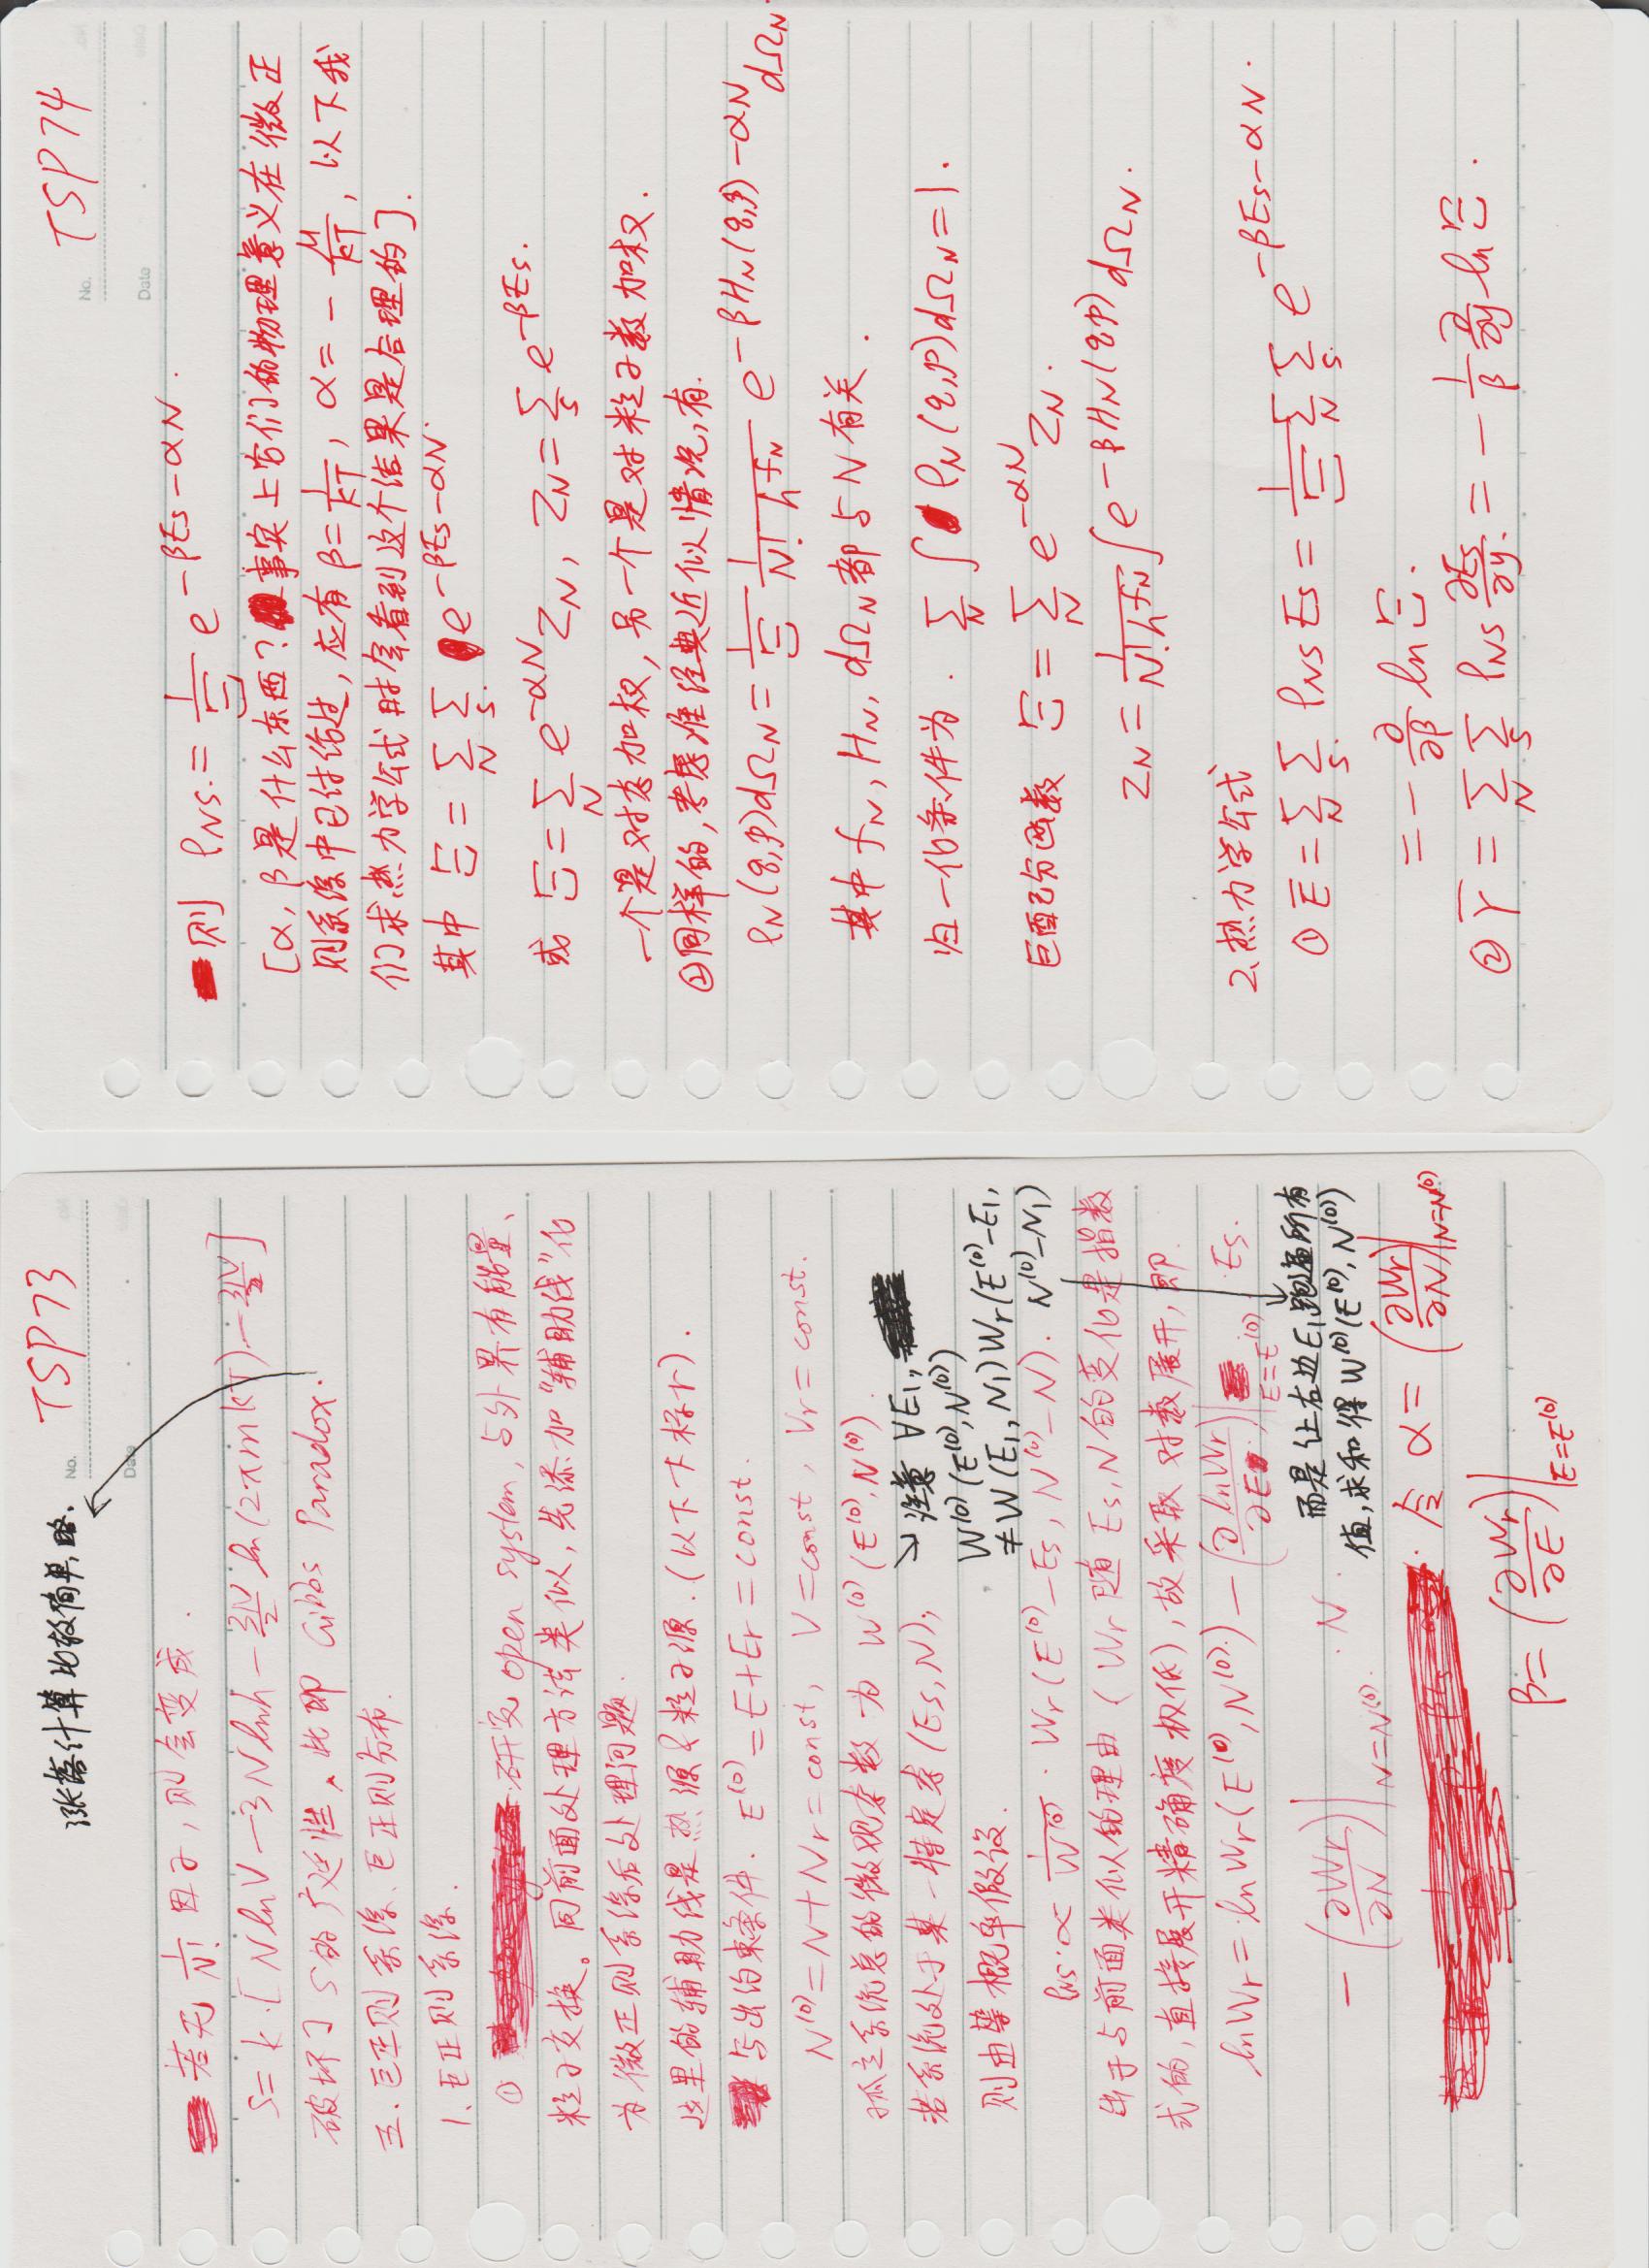 涨落计算比较简单,略.
No. TSP73
Date
若无 1/N! 因子,则会变成.
S=k.[NlnV-3Nlnh-3N/2 ln(2πmkT)-3N/2]
破坏了S的广延性,此即 Gibbs Paradox.
五.巨正则系综、巨正则分布.
1.巨正则系综.
① 研究 open system,与外界有能量、
粒子交换。同前面处理方法类似,先添加“辅助线”化
为微正则系综后处理问题.
这里的辅助线是热源&粒子源.(以下下标r).
写出约束条件. E^(0)=E+Er=const.
N^(0)=N+Nr=const, V=const, Vr=const.
孤立系统总的微观态数为 W^(0)(E^(0),N^(0)).
若系统处于某一特定态(Es,N),
则由等概率假设.
ρNs.∝ 1/W^(0) · Wr(E^(0)-Es,N^(0)-N).
→注意 ∀E1,
W^(0)(E^(0),N^(0))
≠W(E1,N1)Wr(E^(0)-E1,
N^(0)-N1)
出于与前面类似的理由(Wr随Es,N的变化是指数
式的,直接展开精确度极低),故采取对数展开,即
lnWr=lnWr(E^(0),N^(0))-(∂lnWr/∂E)|E=E^(0) ·Es.
-(∂Wr/∂N)|N=N^(0) ·N.
而是让右边E1跑遍所有
值,求和得W^(0)(E^(0),N^(0))
令 α=(∂Wr/∂N)|N=N^(0)
β=(∂Wr/∂E)|E=E^(0)
No. TSP74
Date
则 ρNs.=1/Ξ e^(-βEs-αN).
[α,β是什么东西?事实上它们的物理意义在微正
则系综中已讨论过,应有β=1/kT, α=-μ/kT, 以下我
们求热力学公式时会看到这个结果是合理的].
其中 Ξ=ΣN Σs. e^(-βEs-αN).
或 Ξ=ΣN e^(-αN) ZN, ZN=Σs e^(-βEs).
一个是对态加权,另一个是对粒子数加权.
②同样的,考虑准经典近似情况,有.
ρN(q,p)dΩN=1/Ξ 1/(N! h^fN) e^(-βHN(q,p)-αN) dΩN.
其中 fN, HN, dΩN都与N有关.
归一化条件为. ΣN ∫ρN(q,p)dΩN=1.
巨配分函数 Ξ=ΣN e^(-αN) ZN.
ZN=1/(N!h^fN) ∫e^(-βHN(qp)) dΩN.
2.热力学公式
① Ē=ΣN Σs. ρNs Es=1/Ξ ΣN Σs. e^(-βEs-αN).
=-∂/∂β lnΞ.
② Ȳ=ΣN Σs ρNs ∂Es/∂y.=-1/β ∂/∂y lnΞ.